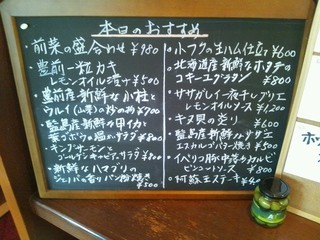 本日のおすすめ
・前菜の盛合わせ ¥980
・豊前一粒カキ
レモンオイル漬け ¥500
・豊前産新鮮な小柱と
ウルイ(山菜)の炒め ¥700
・対馬産新鮮な甲イカと
ゴボウの温かサラダ ¥800
・キングサーモンと
ゴールデンキャビア、サラダ ¥800
・新鮮なハマグリの
ジェノバの香りパン粉焼き
¥500
・小フグの生ハム仕立て ¥600
・北海道産新鮮なホタテの
コキーユグラタン ¥800
・ササガレイ一夜干しグリエ
レモンオイルソース ¥1200
・キヌ貝の炙り ¥600
・対馬産新鮮なサザエ
エスカルゴバター焼き ¥500
・イベリコ豚中落ちカルビ
ビンコットソース ¥800
・阿蘇王ステーキ